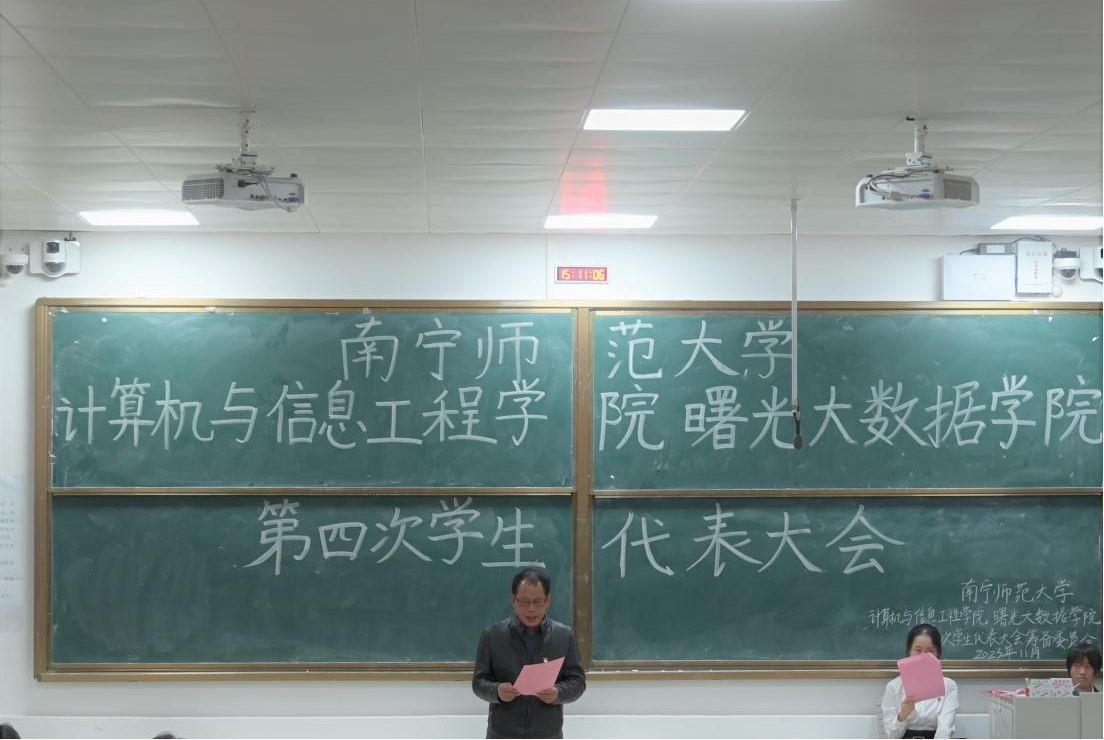 15:11:06
南宁师范大学
计算机与信息工程学院 曙光大数据学院
第四次学生代表大会
南宁师范大学
计算机与信息工程学院 曙光大数据学院
次学生代表大会筹备委员会
2023年11月